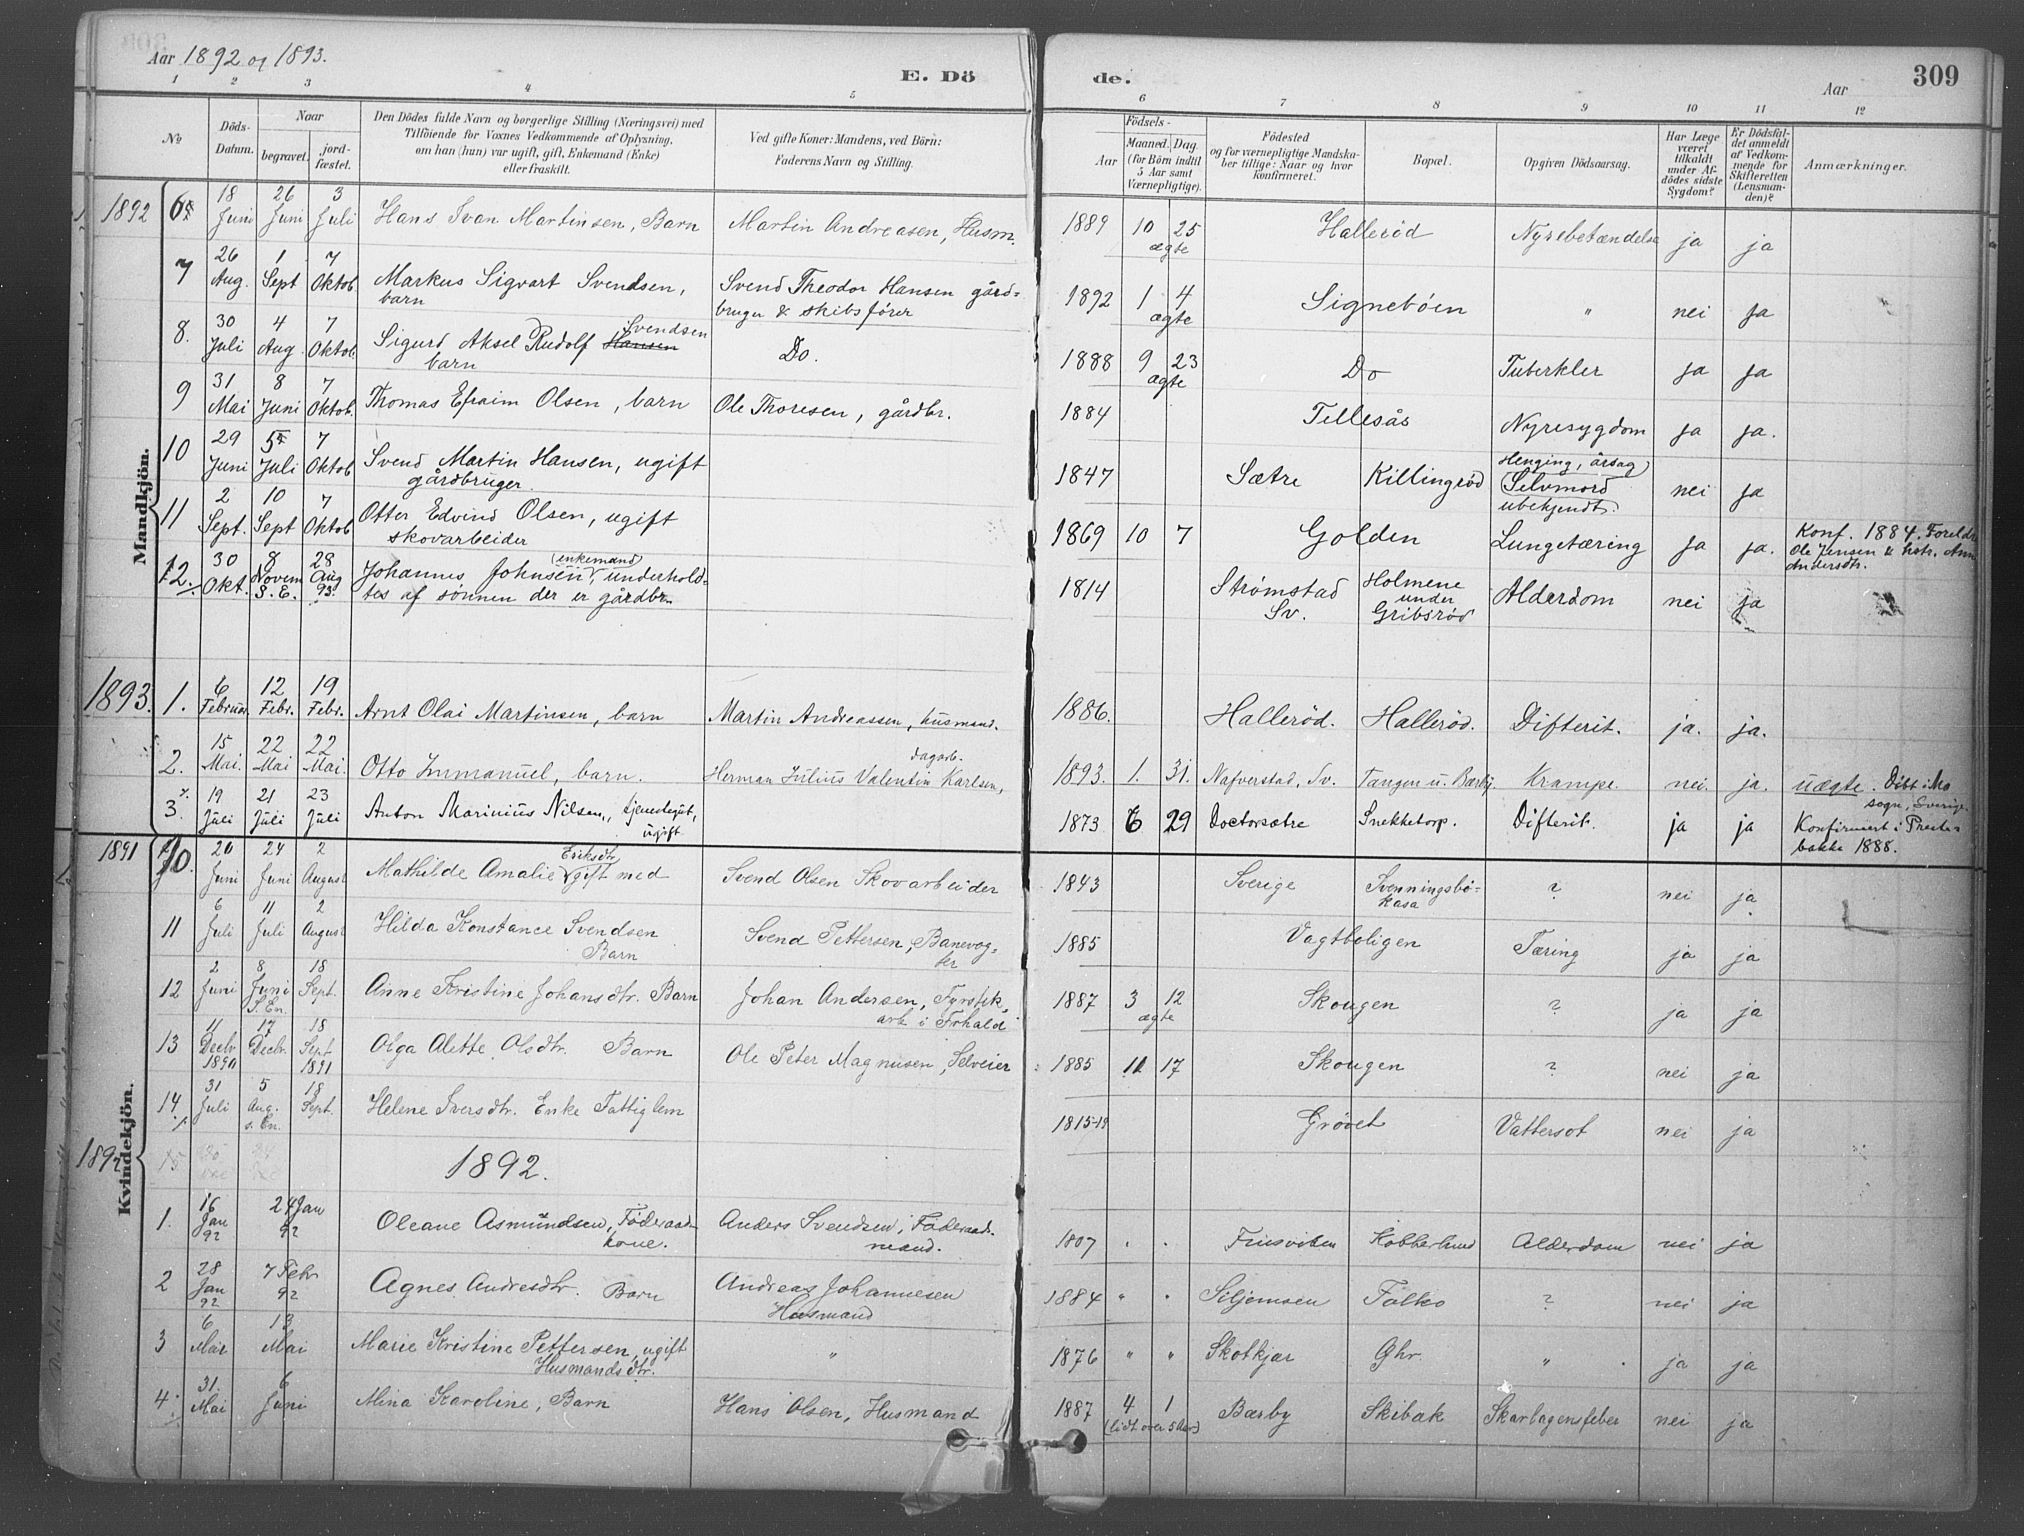 Aar 1892 og 1893.
E. Dö
de.
Aar
309
1 2 3 4 5 6 7 8 9 10 11 12
No
Döds-Datum.
Naar
begravet.
jord-fæstet.
Den Dödes fulde Navn og borgerlige Stilling (Næringsvei) med
Tilföiende for Voxnes Vedkommende af Oplysning,
om han (hun) var ugift, gift, Enkemand (Enke)
eller fraskilt.
Ved gifte Koner: Mandens, ved Börn:
Faderens Navn og Stilling.
Födsels-
Aar
Maaned. Dag
(for Börn indtil
5 Aar samt
Værnepligtige).
Födested
og for værnepligtige Mandska-
ber tillige: Naar og hvor
konfirmeret.
Bopæl.
Opgiven Dödsaarsag.
Har Læge
været
tilkaldt
under Af-
dödes sidste
Sygdom?
Er Dödsfal-
det anmeldt
af Vedkom-
mende for
Skifteretten
(Lensman-
den)?
Anmærkninger.
Mandkjön.
1892 6 18 Juni 26 Juni 3 Juli Hans Ivan Martinsen, Barn Martin Andreasen, Husm. 1889 10 25 ægte Hallerød Nyrebetændelse ja ja
7 26 Aug. 1 Sept 7 Oktob. Markus Sigvart Svendsen, barn Svend Theodor Hansen gårdbruger & skibsfører 1892 1 4 ægte Signebøen " nei ja
8. 30 Juli 4 Aug 7 Oktob. Sigurd Aksel Rudolf Hansen Svendsen barn Do. 1888 9 23 ægte Do Tuberkler ja ja
9 31 Mai 8 Juni 7 Oktob. Thomas Efraim Olsen, barn Ole Thoresen, gårdbr. 1884 Tillesås Nyresygdom ja ja.
10 29 Juni 5 Juli 7 Oktob Svend Martin Hansen, ugift gårdbruger 1847 Sætre Killingrød Henging, årsag Selvmord ubekjendt. nei ja
11 2 Sept. 10 Sept 7 Oktob Otter Edvind Olsen, ugift skovarbeider 1869 10 7 Golden Lungetæring ja ja. Konf. 1884. Foreldre Ole Jensen & hstr. Andersdtr.
12. 30 Okt. 8 Novem S. E. 28 Aug 93. Johannes Johnsen, enkemand underhold-
tes af sønnen der er gårdbr. 1814 Strømstad Sv. Holmene under Gribsrød Alderdom nei ja
1893. 1. 6 Februar. 12 Febr. 19 Febr. Arnt Olai Martinsen, barn Martin Andreassen, husmand. 1886. Hallerød. Hallerød. Difterit. ja. ja.
2. 15 Mai. 22 Mai 22 Mai. Otto Immanuel, barn. Herman Julius Valentin Karlsen, dagarb. 1893. 1. 31. Nafverstad, Sv. Tangen u. Bærby Krampe. nei. ja. uægte. Døbt i Mo sogn, Sverige.
3 19 Juli 21 Juli 23 Juli Anton Marinius Nilsen, tjenestegut, ugift 1873 6 29 Doctorsætre Snekketorp. Difterit. ja ja Konfirmert i Prestebakke 1888.
Kvindekjön.
1891 10 20 Juni 24 Juni 2 August Mathilde Amalie Eriksdtr gift med Svend Olsen Skovarbeider 1843 Sverige Svenningsbökasa ? nei ja
11 6 Juli 11 Juli 2 August Hilda Konstance Svendsen Barn Svend Pettersen, Banevogter 1885 Vagtboligen Tæring ja ja
12 2 Juni 8 Juni S. En. 18 Sept. Anne Kristine Johansdtr. Barn Johan Andersen, Fyrstik arb i Frhald 1887 3 12 ægte Skougen ? ja ja
13 11 Decbr 1890 17 Decbr. 18 Sept 1891 Olga Alette Olsdtr. Barn Ole Peter Magnusen, Selveier 1885 11 17 Skougen ? nei ja
14 31 Juli 5 Aug. s. En. 18 Sept. Helene Iversdtr. Enke Fattiglem 1815-19 Grövet Vattersot nei ja
1892 15
1892.
1. 16 Jan 92 24 Jan 92 Oleane Asmundsen, Föderaadskone. Anders Svendsen, Föderaadsmand. 1807 Kobberlund Alderdom nei ja
2 28 Jan 92 7 Febr 92 Agnes Andresdtr. Barn Andreas Johannesen Husmand 1884 " Siljemsen Folko ? nei ja
3 6 Mai 13 Mai Marie Kristine Pettersen, ugift Husmandsdtr. " 1876 " " Skotkjær Ghr. " ja ja
4 31. Mai 6 Juni Mina Karoline, Barn Hans Olsen, Husmand 1887 4 1 (lidt over 5 Aar) Bærby Skibæk Skarlagensfeber nei ja